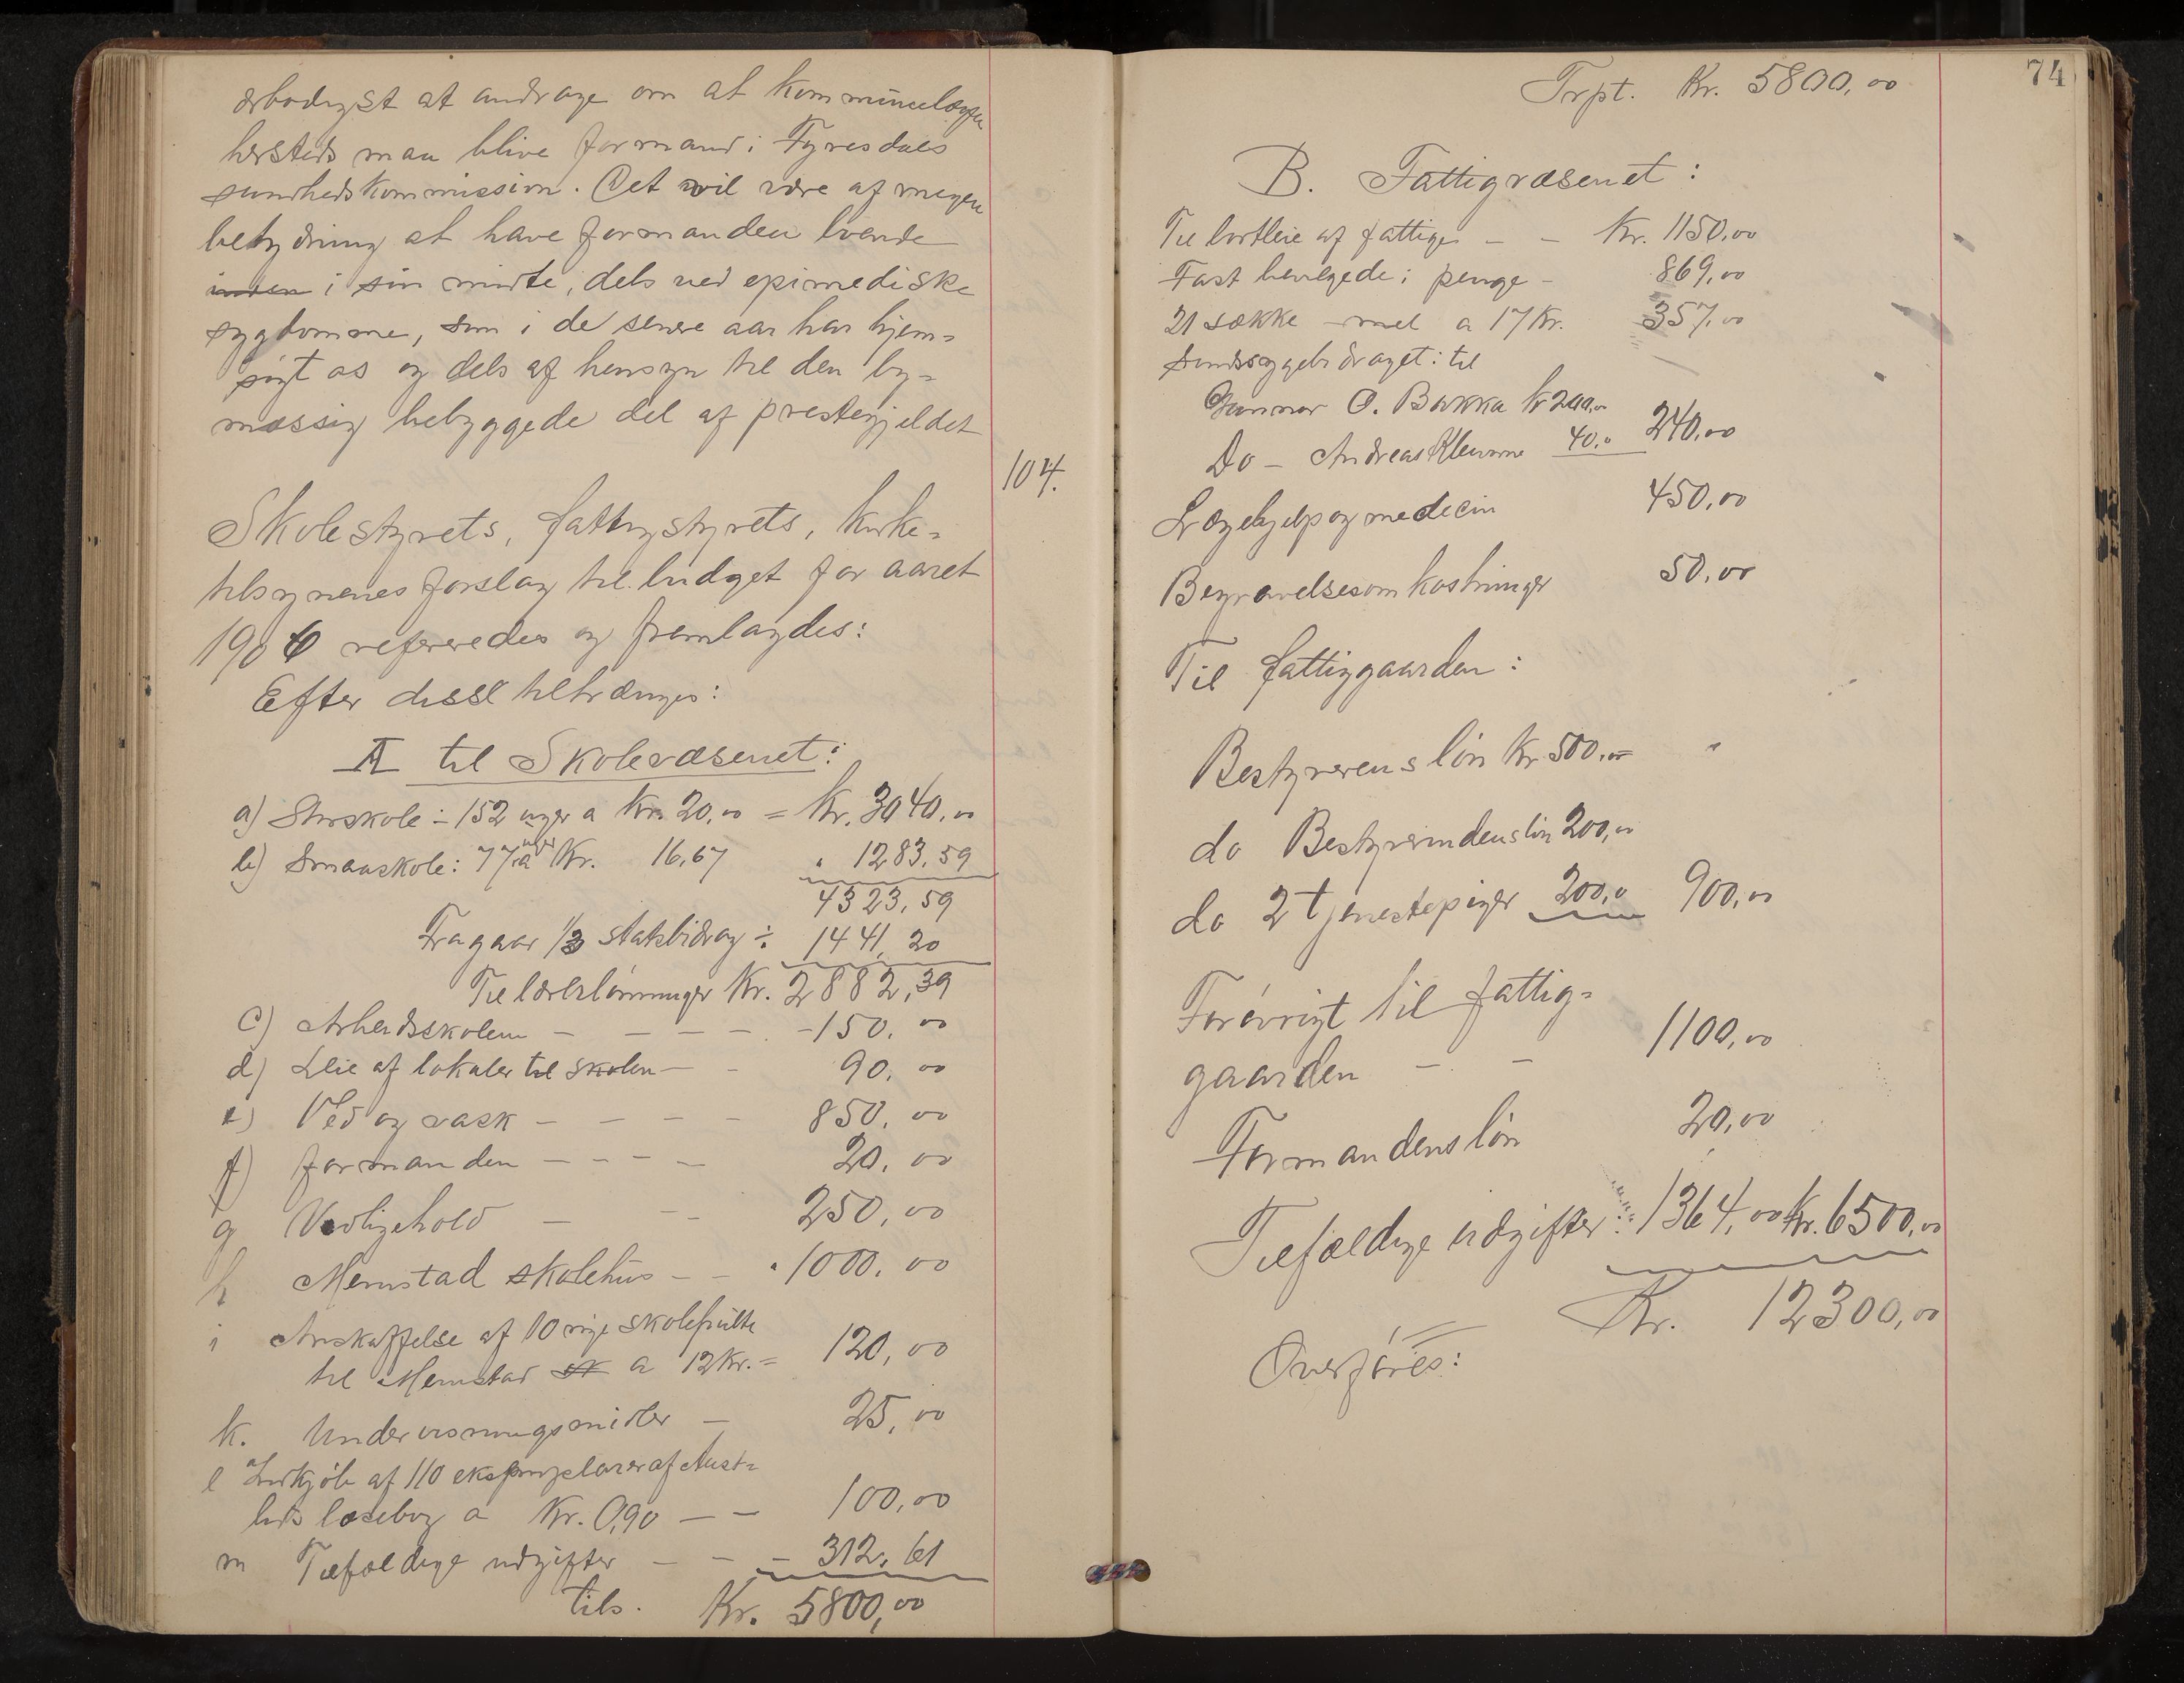 ærbødigst at andrage om at kommunelægen
hersteds maa blive formand i Fyresdals
sundhedskommission. Det vil være af megen
betydning at have formanden boende
inden i sin midte, dels ved epimediske
sygdomme, som i de senere aar har hjem=
søgt os og dels af hensyn til den by=
mæssig bebyggede del af prestegjeldet
104.
Skolestyrets, fattigstyrets, kirke=
tilsynenes forslag til budget for aaret
1906 refereredes og fremlagdes:
Efter disse tiltrænges:
A til Skolevæsenet:
a) Storskole: 152 uger a Kr. 20,00 = Kr. 3040,00
b) Smaaskole: 77 uger a Kr. 16,67 " 1283,59
4323,59
Fragaar 1/3 statsbidrag ÷ 1441,20
Til lærerlønninger Kr. 2882,39
c) Arbeidsskolen - - - - - 150,00
d) Leie af lokaler til skolen - - 90,00
e) Ved og vask - - - - 850,00
f) formanden - - - - 20,00
g Vedligehold - - - 250,00
h Momstad skolehus - - " 1000,00
i Anskaffelse af 10 nye skolepulte
til Momstad sk a 12 Kr. = 120,00
k. Undervisningsmidler - 25,00
l Indkjøb af 110 eksemplarer af Aust=
lids læsebog a Kr. 0,90 - - 100,00
m Tilfældige udgifter - - - 312,61
tils. Kr. 5800,00
74
Trpt. Kr. 5800,00
B. Fattigvæsenet:
Til bortleie af fattige - - Kr. 1150,00
Fast bevilgede i penge - 869,00
21 sække mel a 17 Kr. 357,00
Sindssygebidraget: til
Gunnar O. Bakka Kr 200,00
Do - Andreas Kleivene 40,0 240,00
Lægehjelp og medecin 450,00
Begravelsesomkostninger 50,00
Til fattiggaarden:
Bestyrerens løn Kr 500,00 "
do Bestyrerindens løn 200,00
do 2 tjenestepiger 200,0 900,00
Forøvrigt til fattig=
gaarden - - 1100,00
Formandens løn 20,00
Tilfældige udgifter: 1364,00 Kr. 6500,00
Kr. 12300,00
Overføres: